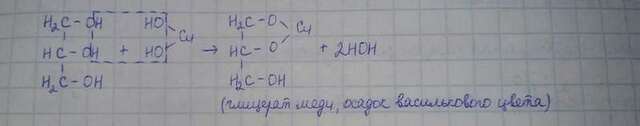 H₂C - OH HO H₂C - O
Cu Cu
HC - OH + HO → HC - O + 2HOH
H₂C - OH H₂C - OH
(глицерат меди, осадок василькового цвета)